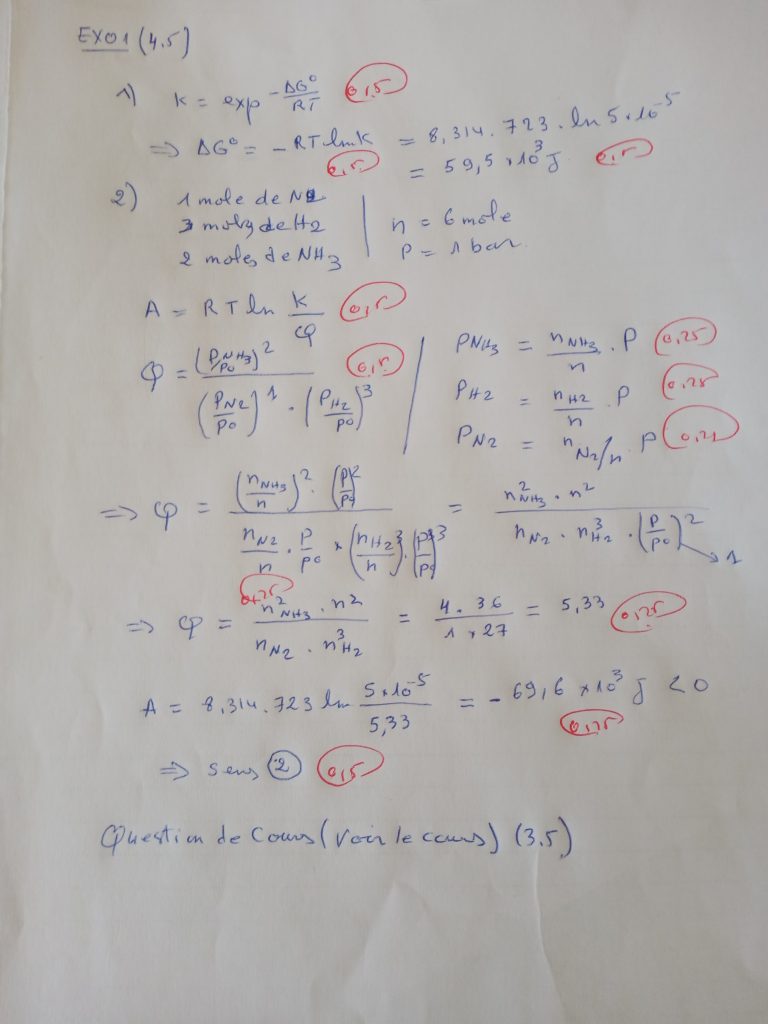 EXO1 (4.5)
1) K = exp -ΔG°/RT 0,5
⇒ ΔG° = - RT ln K = 8,314 . 723 . ln 5 × 10^-5
0,5 = 59,5 × 10^3 J 0,5
2) 1 mole de N2
3 moles de H2 | n = 6 mole
2 moles de NH3 | P = 1 bar
A = RT ln K/φ 0,5
φ = (P_NH3/P°)^2 / (P_N2/P°)^1 . (P_H2/P°)^3 0,5
P_NH3 = n_NH3/n . P 0,25
P_H2 = n_H2/n . P 0,25
P_N2 = n_N2/n . P 0,25
⇒ φ = (n_NH3/n)^2 . (P/P°)^2 / n_N2/n . P/P° × (n_H2/n)^3 . (P/P°)^3 = n^2_NH3 . n^2 / n_N2 . n^3_H2 . (P/P°)^2 → 1
0,25
⇒ φ = n^2_NH3 . n^2 / n_N2 . n^3_H2 = 4 . 36 / 1 × 27 = 5,33 0,25
A = 8,314 . 723 ln 5 × 10^-5 / 5,33 = - 69,6 × 10^3 J < 0
⇒ sens 2 0,5
Question de Cours (voir le cours) (3.5)